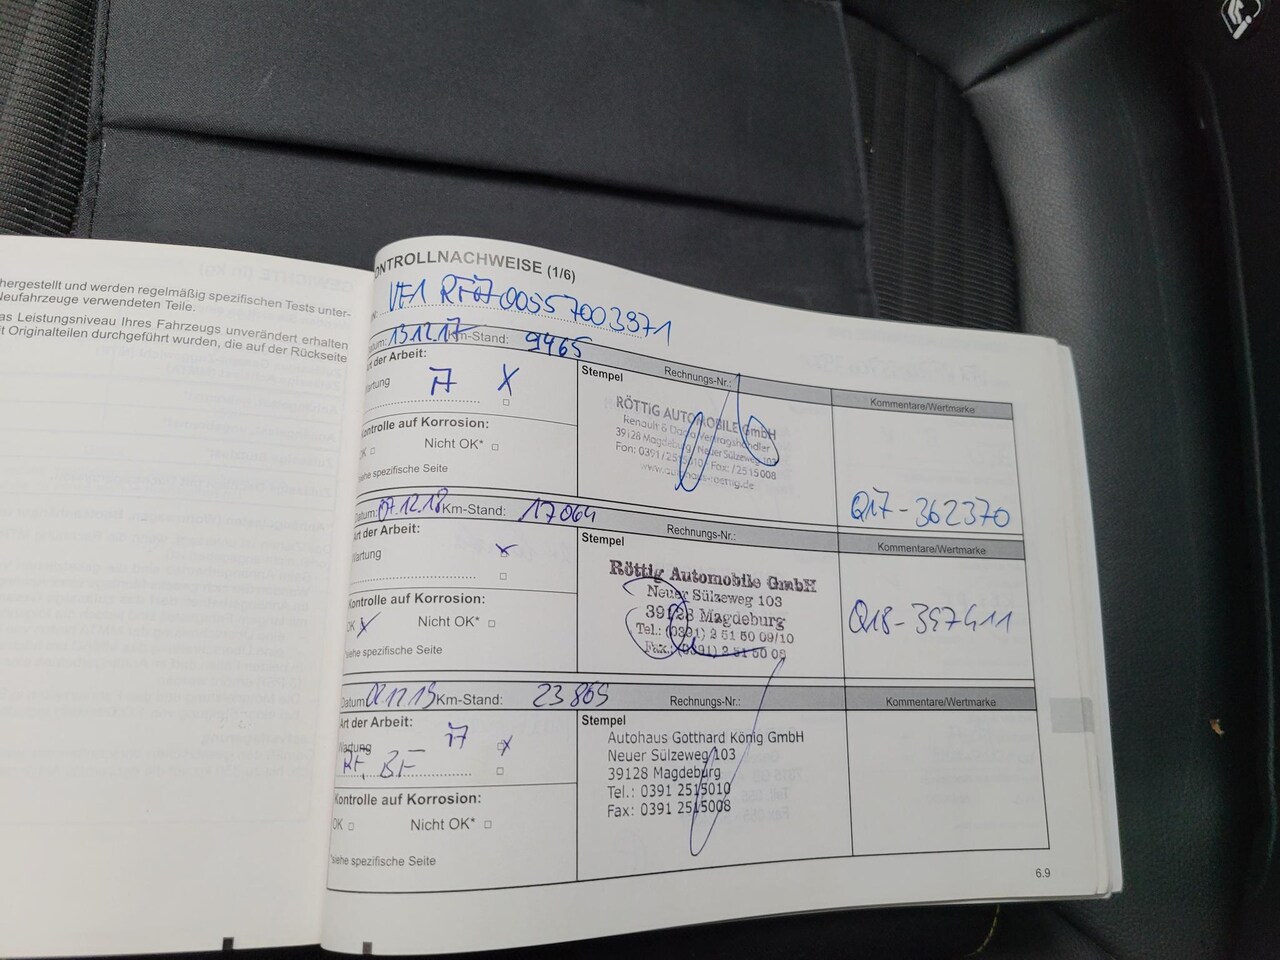 hergestellt und werden regelmäßig spezifischen Tests unter-
Neufahrzeuge verwendeten Teile.
as Leistungsniveau Ihres Fahrzeugs unverändert erhalten
it Originalteilen durchgeführt wurden, die auf der Rückseite
ONTROLLNACHWEISE (1/6)
N: VF1
Datum: 13.12.17 Km-Stand: 9465
Rechnungs-Nr.:
Art der Arbeit:
Stempel
Kommentare/Wertmarke
Wartung A X
RÖTTIG AUTOMOBILE GmbH
Renault & Dacia Vertragshändler
39128 Magdeburg, Neuer Sülzeweg 103
Fon: 0391/2515010 Fax: /2515008
www.autohaus-koenig.de
Kontrolle auf Korrosion:
OK □ Nicht OK* □
siehe spezifische Seite
Q17-362370
Datum: 07.12.18 Km-Stand: 17064
Rechnungs-Nr.:
Art der Arbeit:
Stempel
Kommentare/Wertmarke
Wartung X
Röttig Automobile GmbH
Neuer Sülzeweg 103
39128 Magdeburg
Tel.: (0391) 2 51 50 09/10
Fax.: (0391) 2 51 50 08
Kontrolle auf Korrosion:
OK X Nicht OK* □
*siehe spezifische Seite
Q18-397411
Datum 02.12.19 Km-Stand: 23869
Rechnungs-Nr.:
Kommentare/Wertmarke
Art der Arbeit:
Stempel
Wartung A X
RF, BF
Autohaus Gotthard König GmbH
Neuer Sülzeweg 103
39128 Magdeburg
Tel.: 0391 2515010
Fax: 0391 2515008
Kontrolle auf Korrosion:
OK □ Nicht OK* □
*siehe spezifische Seite
6.9